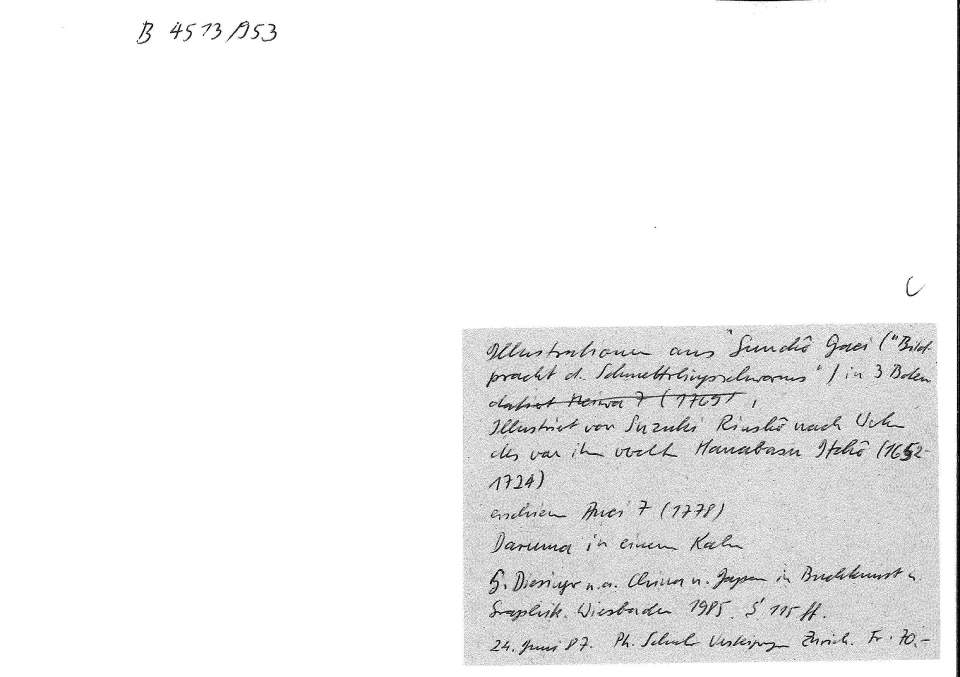 B 4513/953
C
Illustrationen aus "Gunchō Gaei ("Bild-
pracht d. Schmetterlingsschwarms") in 3 Bden
datiert Meiwa 7 (1769),
Illustriert von Suzuki Rinshō nach
des von ihm Hanabasu Itchō (1652-
1724)
erschien Anei 7 (1778)
Daruma in einem Kahn
G. Diesinger u.a. China u. Japan in Buchkunst u.
Graphik. Wiesbaden 1985. S 115 ff.
24. Juni 87. Ph. Schuler Zürich. Fr. 70,-